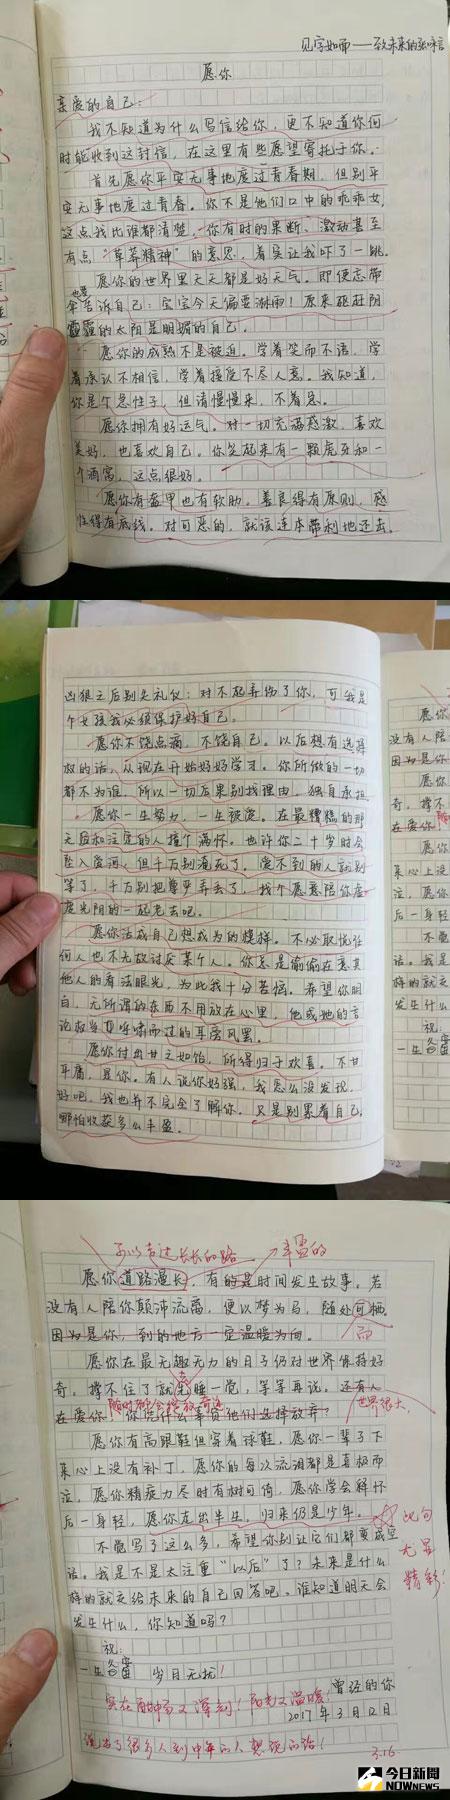 见字如面——致未来的张咪言
愿你
亲爱的自己:
我不知道为什么写信给你,更不知道你何
时能收到这封信,在这里有些愿望寄托于你。
首先愿你平安无事地度过青春期,但别平
安无事地度过青春。你不是他们口中的乖乖女,
这点我比谁都清楚,你有时的果断、激动甚至
有点“草莽精神”的意思,着实让我吓了一跳。
愿你的世界里天天都是好天气。即便忘带
伞也要告诉自己:宝宝今天偏要淋雨!原来驱赶阴
霾的太阳是明媚的自己。
愿你的成熟不是被迫。学着笑而不语,学
着承认不相信,学着接受不尽人意。我知道,
你是个急性子,但请慢慢来,不着急。
愿你拥有好运气。对一切充满感激,喜欢
美好,也喜欢自己。你笑起来有一颗虎牙和一
个酒窝,这点很好。
愿你有盔甲也有软肋。善良得有原则,感
性得有底线。对可恶的,就该连本带利地还击。
凶狠之后别失礼仪:对不起弄伤了你,可我是
个女孩我必须保护好自己。
愿你不饶点滴,不饶自己。以后想有选择
权的话,从现在开始好好学习。你所做的一切
都不为谁,所以一切后果别找理由,独自承担。
愿你一生努力,一生被爱。在最糟糕的那
天因和注定的人撞个满怀。也许你二十岁时会
坠入爱河,但千万别淹死了,爱不到的人就别
等了,千万别把尊严弄丢了,找个愿意陪你虚
度光阴的一起老去吧。
愿你活成自己想成为的模样。不必取悦任
何人也不无故讨厌某个人。你总是偷偷在意其
他人的看法眼光,为此我十分苦恼。希望你明
白,无所谓的东西不用放在心里,他或她的言
论权当是呼啸而过的耳旁风罢。
愿你付出甘之如饴,所得归于欢喜。不甘
平庸,是你。有人说你好强,我怎么没发现。
好吧,我也并不完全了解你。只是别累着自己,
哪怕收获多么丰盈。
可以走过长长的路
丰盈的
愿你道路漫长,有的是时间发生故事。若
没有人陪你颠沛流离,便以梦为马,随处可栖。
因为是你,到的地方一定温暖为向。
而
愿你在最无趣无力的日子仍对世界保持好
奇。撑不住了就去睡一觉,等等再说。还有人
随时都会绽放奇迹
世界很大,
在爱你,你凭什么辜负他们选择放弃?
愿你有高跟鞋但穿着球鞋,愿你一辈子下
来心上没有补丁,愿你的每次流泪都是喜极而
泣,愿你精疲力尽时有树可倚,愿你学会释怀
后一身轻,愿你走出半生,归来仍是少年。
此句
尤显
精彩!
不觉写了这么多,希望你别让它们都变成空
话。我是不是太注重“以后”了?未来是什么
样的就交给未来的自己回答吧。谁知道明天会
发生什么,你知道吗?
祝:
一生多蜜 岁月无扰!
曾经的你
2017年3月12日
实在的情又深刻!阳光又温暖!
说出了很多人到中年的人想说的话!
3.16
今日新聞
NOWNEWS